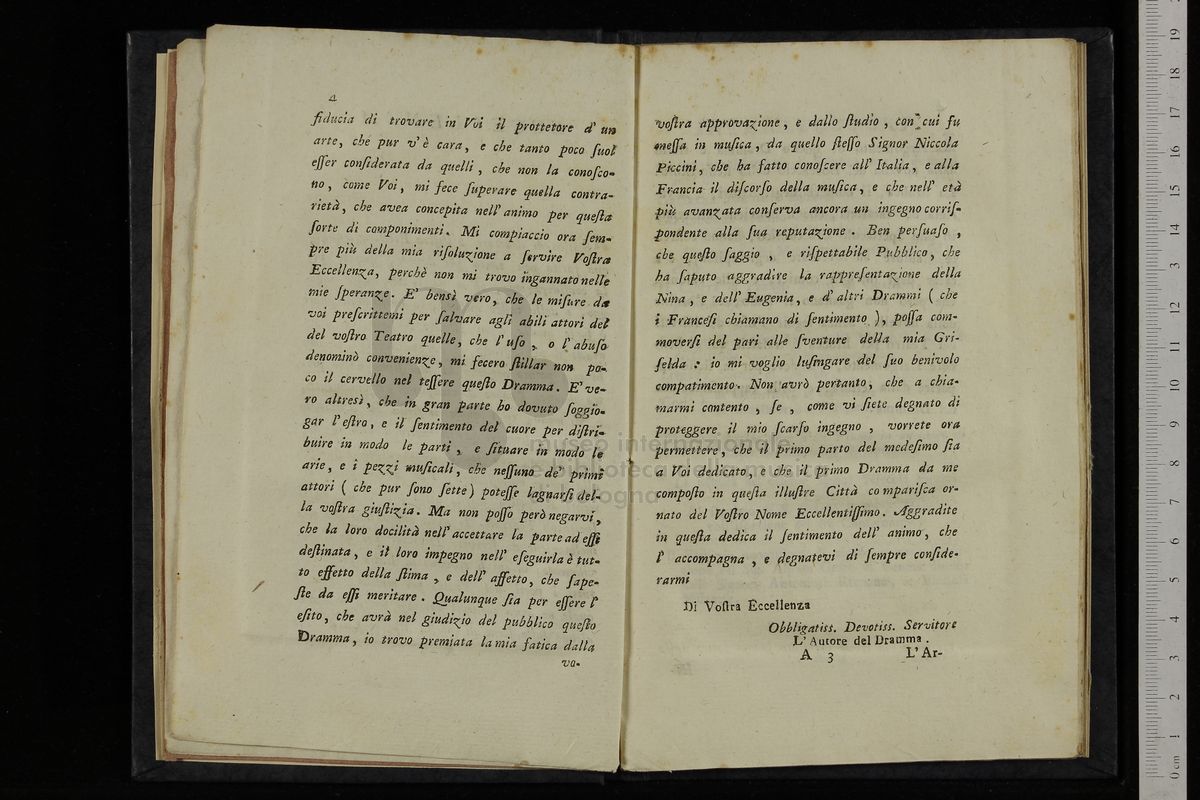 4
fiducia di trovare in Voi il prottetore d' un
arte, che pur v' è cara, e che tanto poco ſuol
eſſer conſiderata da quelli, che non la conoſco-
no, come Voi, mi fece ſuperare quella contra-
rietà, che avea concepita nell' animo per queſta
ſorte di componimenti. Mi compiaccio ora ſem-
pre più della mia riſoluzione a ſervire Voſtra
Eccellenza, perchè non mi trovo ingannato nelle
mie ſperanze. E' bensì vero, che le miſure da
voi preſcrittemi per ſalvare agli abili attori del
del voſtro Teatro quelle, che l' uſo, o l' abuſo
denominò convenienze, mi fecero ſtillar non po-
co il cervello nel teſſere queſto Dramma. E' ve-
ro altresì, che in gran parte ho dovuto ſoggio-
gar l' eſtro, e il ſentimento del cuore per diſtri-
buire in modo le parti, e ſituare in modo le
arie, e i pezzi muſicali, che neſſuno de' primi
attori ( che pur ſono ſette ) poteſſe lagnarſi del-
la voſtra giuſtizia. Ma non poſſo però negarvi,
che la loro docilità nell' accettare la parte ad eſſi
deſtinata, e il loro impegno nell' eſeguirla è tut-
to effetto della ſtima, e dell' affetto, che ſape-
ſte da eſſi meritare. Qualunque ſia per eſſere l'
eſito, che avrà nel giudizio del pubblico queſto
Dramma, io trovo premiata la mia fatica dalla
vo-
voſtra approvazione, e dallo ſtudio, con cui fu
meſſa in muſica, da quello ſteſſo Signor Niccola
Piccini, che ha fatto conoſcere all' Italia, e alla
Francia il diſcorſo della muſica, e che nell' età
più avanzata conſerva ancora un ingegno corriſ-
pondente alla ſua reputazione. Ben perſuaſo,
che queſto ſaggio, e riſpettabile Pubblico, che
ha ſaputo aggradire la rappreſentazione della
Nina, e dell' Eugenia, e d' altri Drammi ( che
i Franceſi chiamano di ſentimento ), poſſa com-
moverſi del pari alle ſventure della mia Gri-
ſelda : io mi voglio luſingare del ſuo benivolo
compatimento. Non avrò pertanto, che a chia-
marmi contento, ſe, come vi ſiete degnato di
proteggere il mio ſcarſo ingegno, vorrete ora
permettere, che il primo parto del medeſimo ſia
a Voi dedicato, e che il primo Dramma da me
compoſto in queſta illuſtre Città compariſca or-
nato del Voſtro Nome Eccellentiſſimo. Aggradite
in queſta dedica il ſentimento dell' animo, che
l' accompagna, e degnatevi di ſempre conſide-
rarmi
Di Voſtra Eccellenza
Obbligatiss. Devotiss. Servitore
L' Autore del Dramma.
A 3 L' Ar-
museo internazionale
e biblioteca della musica
di bologna
0 cm 1 2 3 4 5 6 7 8 9 10 11 12 13 14 15 16 17 18 19